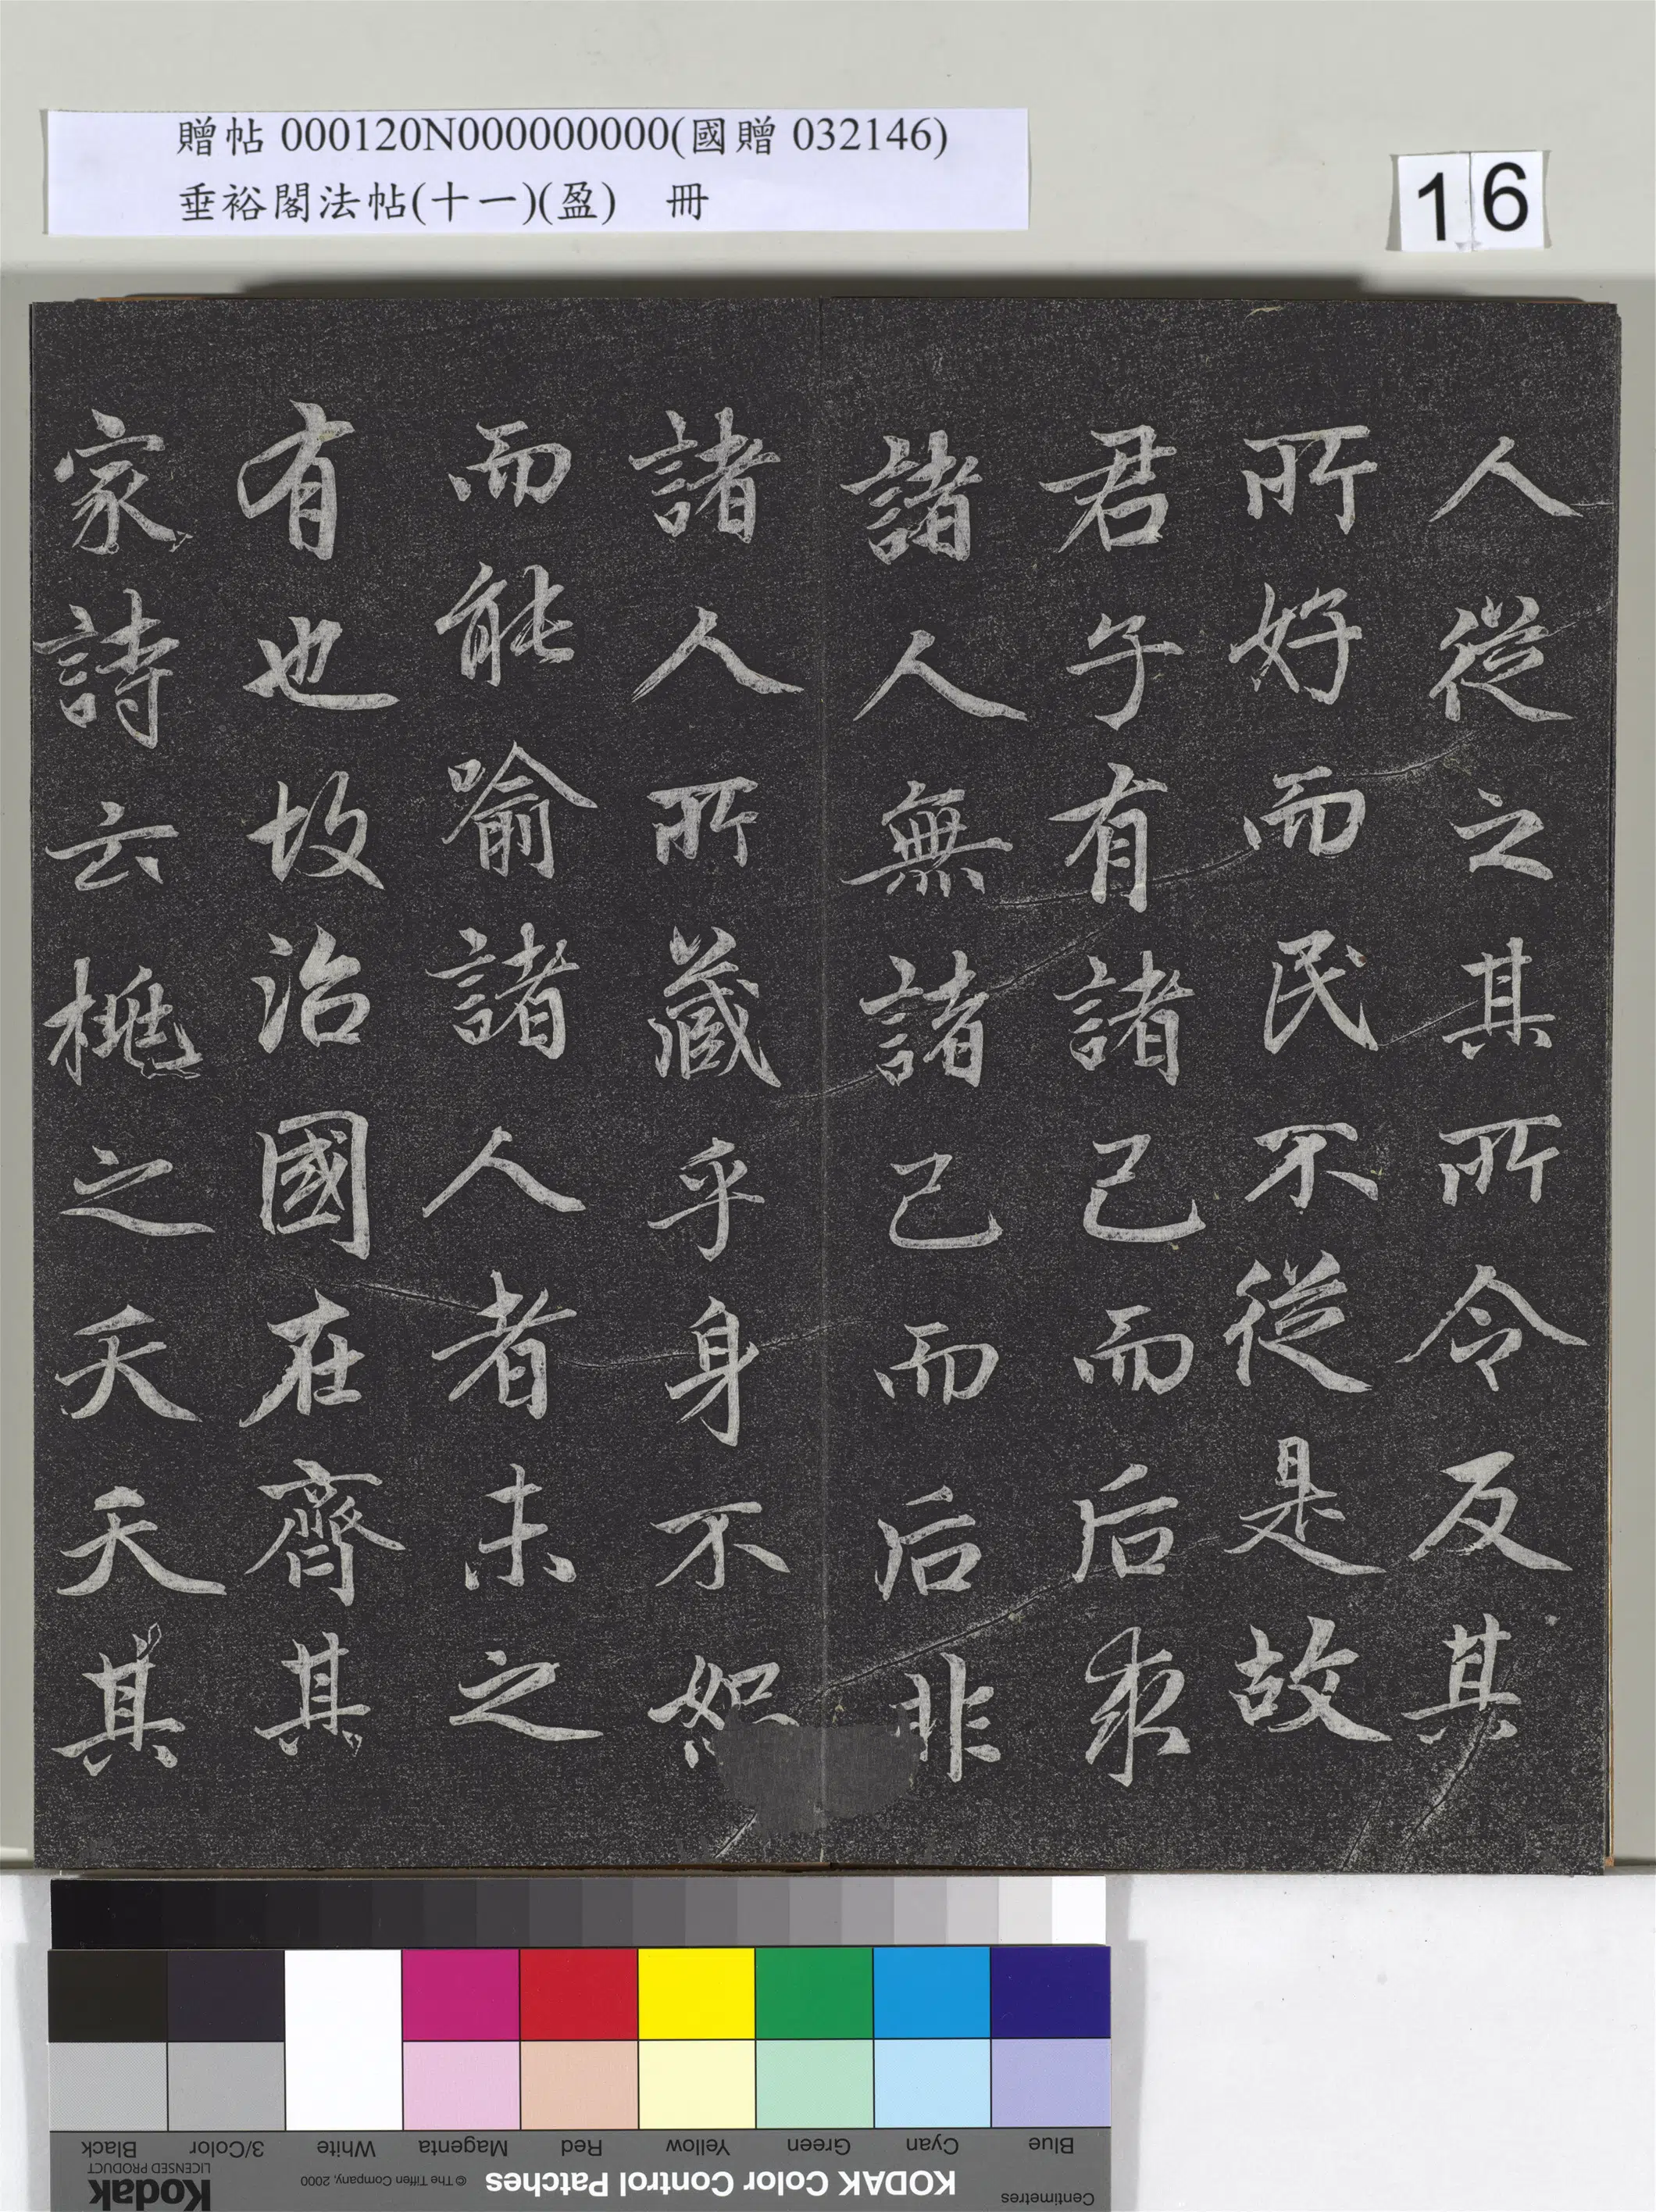 贈帖 000120N000000000(國贈 032146)
垂裕閣法帖(十一)(盈) 冊
16
人從之其所令反其
所好而民不從是故
君子有諸己而后求
諸人無諸己而后非
諸人所藏乎身不恕
而能喻諸人者未之
有也故治國在齊其
家詩云桃之夭夭其
Blue Cyan Green Yellow Red Magenta White 3/Color Black
Centimetres KODAK Color Control Patches © The Tiffen Company, 2000 Kodak LICENSED PRODUCT